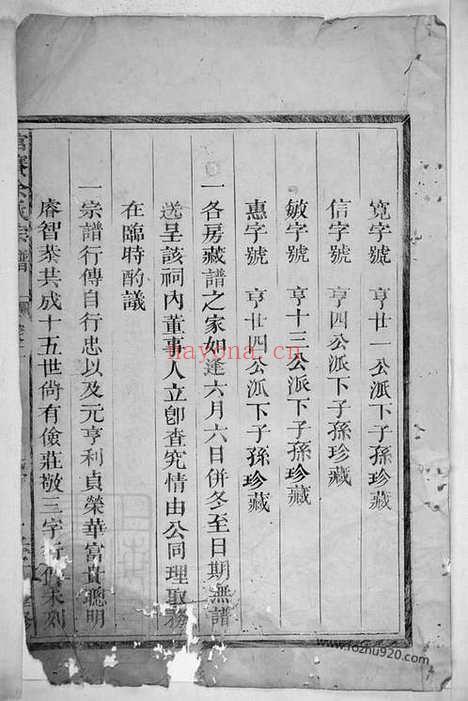 寬字號 亨廿一公派下子孫珍藏
信字號 亨四公派下子孫珍藏
敏字號 亨十二公派下子孫珍藏
惠字號 亨廿四公派下子孫珍藏
一各房藏譜之家如逢六月六日併冬至日期無譜
送呈該祠內董事人立卽查究情由公同理取
在臨時酌議
一宗譜行傳自行忠以及元亨利貞榮華富貴聰明
睿智恭共成十五世尙有儉莊敬三字行傳未刻
氏宗譜
hayona.cn
www.fozhu920.com